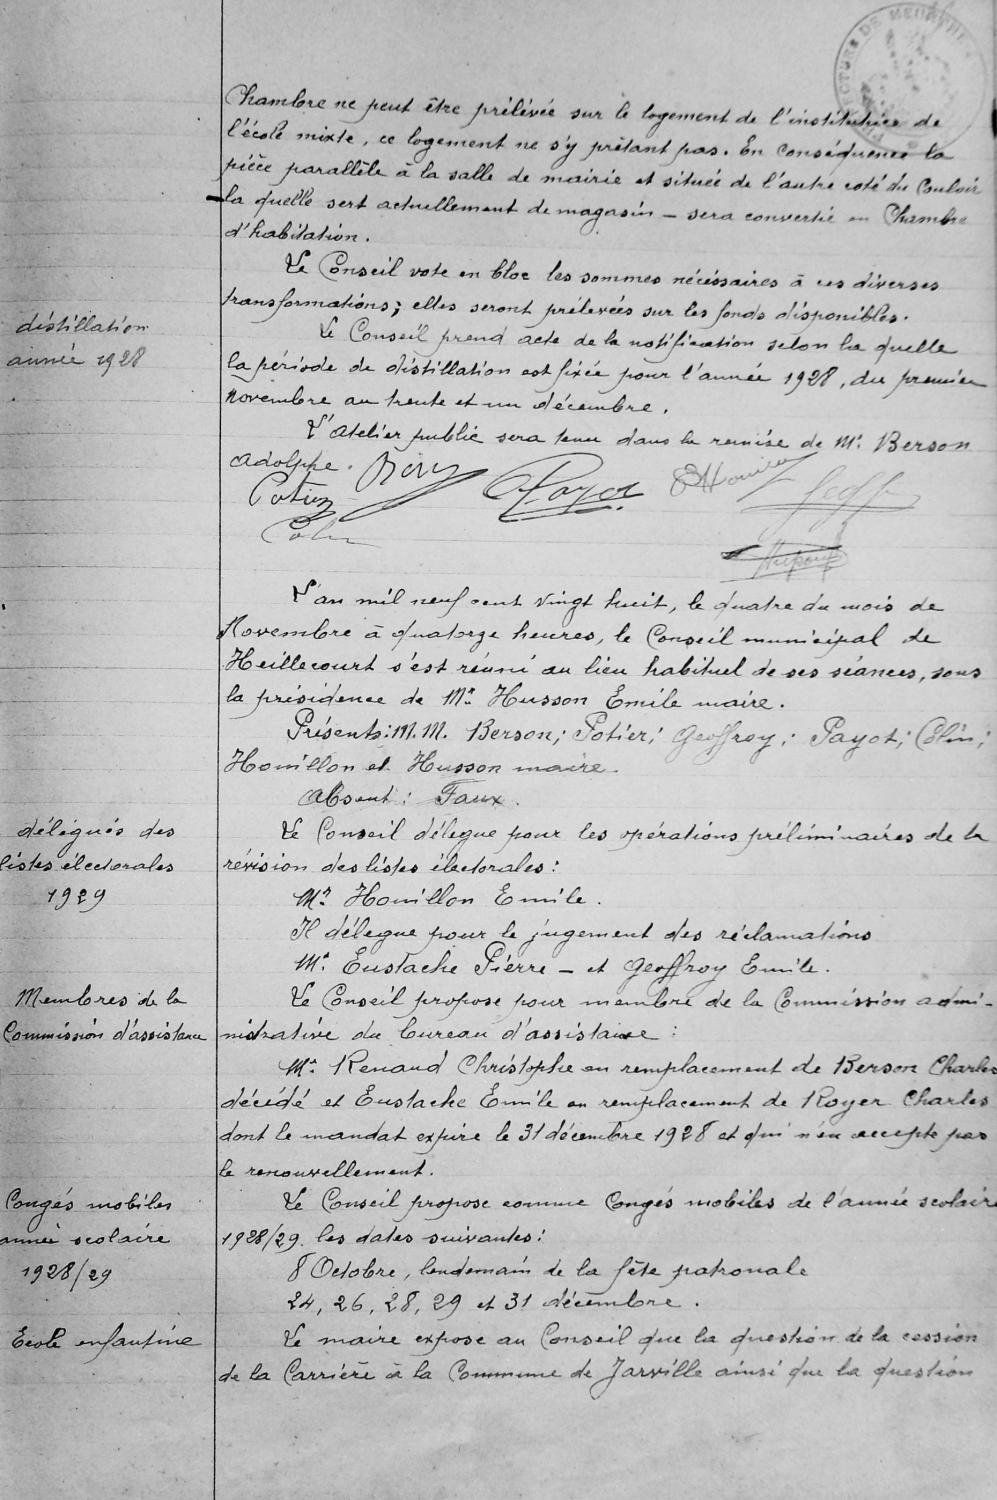 Chambre ne peut être prélévée sur le logement de l'institutrice de
l'école mixte, ce logement ne s'y prêtant pas. En conséquence la
pièce parallèle à la salle de mairie et située de l'autre coté du Couloir
- la quelle sert actuellement de magasin - sera convertie en Chambre
d'habitation.
Le Conseil vote en bloc les sommes nécessaires à ces diverses
transformations; elles seront prélevées sur les fonds disponibles.
distillation
année 1928
Le Conseil prend acte de la notification selon la quelle
la période de distillation est fixée pour l'année 1928, du premier
novembre au trente et un décembre.
L'atelier public sera tenu dans la remise de Mr. Berson
Adolphe.
Potier
Payot
E Houillon
Geoff
Colin
L'an mil neuf cent vingt huit, le quatre du mois de
Novembre à quatorze heures, le Conseil municipal de
Heillecourt s'est réuni au lieu habituel de ses séances, sous
la présidence de Mr. Husson Emile maire.
Présents: M.M. Berson; Potier; Geoffroy; Payot; Colin;
Houillon et Husson maire.
Absent: Faux.
délégués des
listes électorales
1929
Le Conseil délegue pour les opérations préliminaires de la
révision des listes électorales:
Mr. Houillon Emile.
Il délegue pour le jugement des réclamations
Mr. Eustache Pierre - et Geoffroy Emile.
Membres de la
Commission d'assistance
Le Conseil propose pour membre de la Commission admi-
nistrative du bureau d'assistance:
Mr. Renaud Christophe en remplacement de Berson Charles
décédé et Eustache Emile en remplacement de Royer Charles
dont le mandat expire le 31 décembre 1928 et qui n'en accepte pas
le renouvellement.
Congés mobiles
année scolaire
1928/29
Le Conseil propose comme Congés mobiles de l'année scolaire
1928/29. les dates suivantes:
8 Octobre, lendemain de la fête patronale
24, 26, 28, 29 et 31 décembre.
Ecole enfantine
Le maire expose au Conseil que la question de la cession
de la Carrière à la Commune de Jarville ainsi que la question